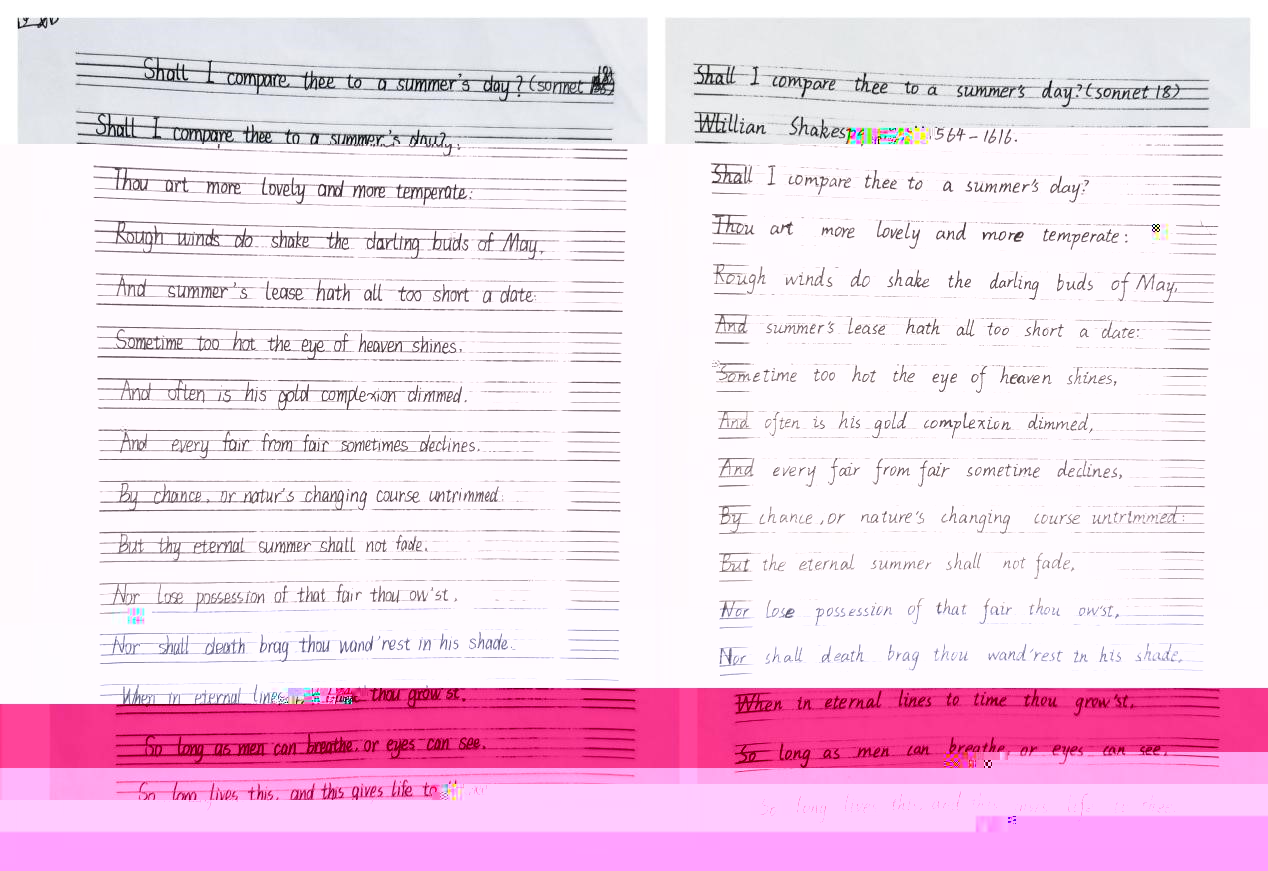 Shall I compare thee to a summer's day? (sonnet
Shall I compare thee to a summer's day?
Thou art more lovely and more temperate:
Rough winds do shake the darling buds of May,
And summer's lease hath all too short a date:
Sometime too hot the eye of heaven shines,
And often is his gold complexion dimmed.
And every fair from fair sometimes declines.
By chance, or natur's changing course untrimmed:
But thy eternal summer shall not fade.
Nor lose possession of that fair thou ow'st,
Nor shall death brag thou wand'rest in his shade.
When in eternal lines thou grow'st.
So long as men can breathe, or eyes can see.
So long lives this, and this gives life to
Shall I compare thee to a summer's day? (sonnet 18)
Willian 564-1616.
Shall I compare thee to a summer's day?
Thou art more lovely and more temperate:
Rough winds do shake the darling buds of May,
And summer's lease hath all too short a date:
Sometime too hot the eye of heaven shines,
And often is his gold complexion dimmed,
And every fair from fair sometime declines,
By chance, or nature's changing course untrimmed:
But the eternal summer shall not fade,
Nor lose possession of that fair thou ow'st,
Nor shall death brag thou wand'rest in his shade,
When in eternal lines to time thou grow'st,
So long as men can breathe, or eyes can see,
So long lives this, and this life to thee